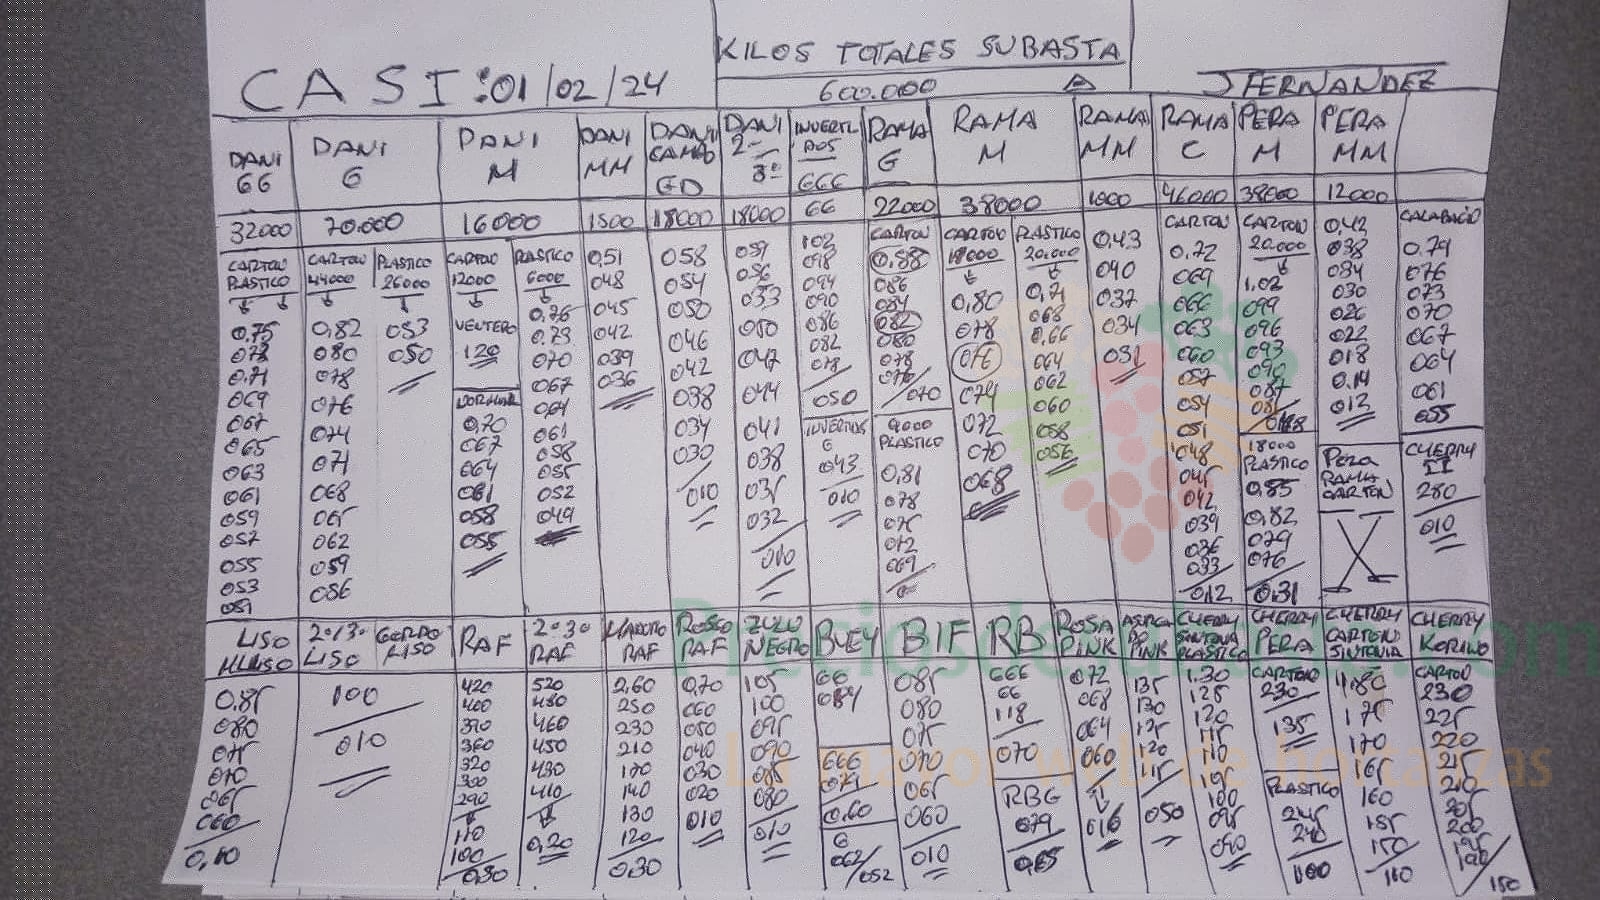 KILOS TOTALES SUBASTA
CASI: 01/02/24
600.000
A
J FERNANDEZ
DANI GG
DANI G
DANI M
DANI MM
DANI CAMA GD
DANI 2ª 3ª
INVERTIDOS GGG
RAMA G
RAMA M
RAMA MM
RAMA C
PERA M
PERA MM
32000
70.000
16000
1500
18000
18000
GG
22000
38000
1000
46000
38000
12000
CARTON PLASTICO
0,75
073
0,71
069
067
065
063
061
059
057
055
053
051
CARTON
44000
0,82
080
078
076
074
071
068
065
062
059
056
PLASTICO
26000
053
050
CARTON
12000
VENTERO
120
NORMAL
0,70
067
064
061
058
055
PLASTICO
6000
0,76
0.73
070
067
064
061
058
055
052
049
0,51
048
045
042
039
036
058
054
050
046
042
038
034
030
010
059
056
053
050
047
044
041
038
035
032
010
102
098
094
090
086
082
078
050
INVERTIDOS
G
043
010
CARTON
0,88
086
084
082
080
078
076
070
9000
PLASTICO
0,81
078
075
072
069
CARTON
18000
0,80
078
076
074
072
070
068
PLASTICO
20.000
0,71
068
0.66
064
062
060
058
056
0,43
040
037
034
031
CARTON
0,72
069
066
063
060
057
054
051
048
045
042
039
036
033
0,12
CARTON
20.000
1,02
099
096
093
090
087
084
18000
PLASTICO
0,85
0,82
079
076
0,31
0,42
038
034
030
026
022
018
0.14
012
PERA
RAMA
CARTON
X
CALABACIN
0.79
076
073
070
067
064
061
055
CHERRY
II
280
010
LISO
0.85
080
075
070
065
060
0,10
2º/3º LISO
GORDO LISO
100
010
RAF
420
400
390
360
320
300
290
110
100
0,30
2º 3º RAF
520
480
460
450
430
410
0,20
MARCITO RAF
2,60
250
230
210
170
140
130
120
0,30
ROSSO RAF
0,70
060
050
040
030
020
010
ZULO NEGRO
105
100
095
090
085
080
010
BUEY
GG
084
GGG
071
0.60
G
062/052
BIF
085
080
075
070
065
060
010
RB
GGG
GG
118
070
RBG
079
0,65
ROSA PINK
072
068
064
060
016
PINK
135
130
125
120
115
050
CHERRY SINTONIA PLASTICO
1.30
125
120
115
110
105
100
095
090
CHERRY PERA
CARTON
230
135
PLASTICO
245
240
100
CHERRY CARTON SINTONIA
1,80
175
170
165
160
155
150
110
CHERRY KORINO
CARTON
230
225
220
215
210
205
200
195
190
150
Preciosde
.com
La mayor web de hortalizas